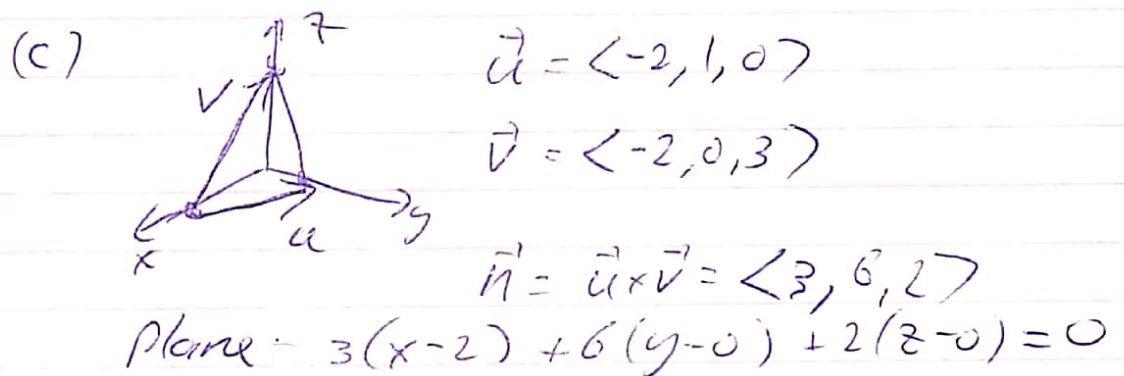 (c)
z
v
u
x
y
u⃗ = <-2, 1, 0>
v⃗ = <-2, 0, 3>
n⃗ = u⃗ x v⃗ = <3, 6, 2>
Plane - 3(x-2) + 6(y-0) + 2(z-0) = 0